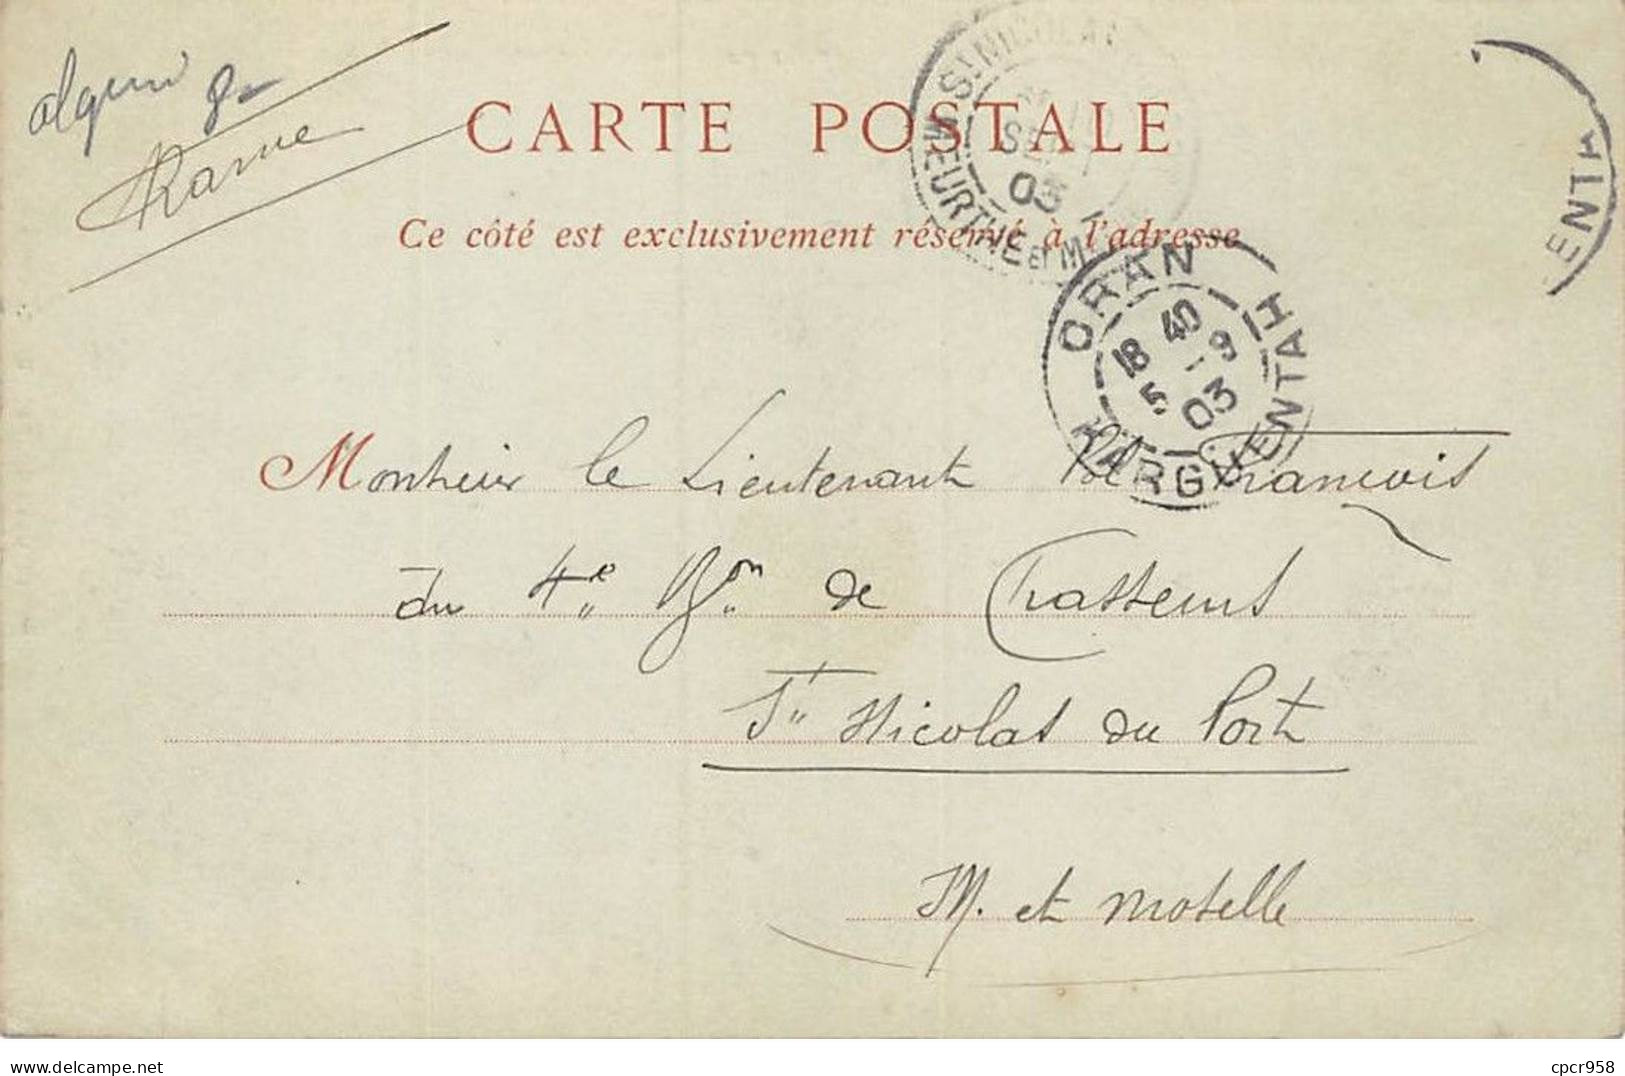 algerie 8-
CARTE POSTALE
Ce côté est exclusivement réservé à l'adresse
ST NICOLAS
MEURTHE ET M
SEPT
03
ORAN
18 40
5 -9
03
KARGUENTAH
ENTA
Monsieur le Lieutenant Pol François
du 4e Bon de Chasseurs
St Nicolas du Port
M. et Moselle
cpcr958